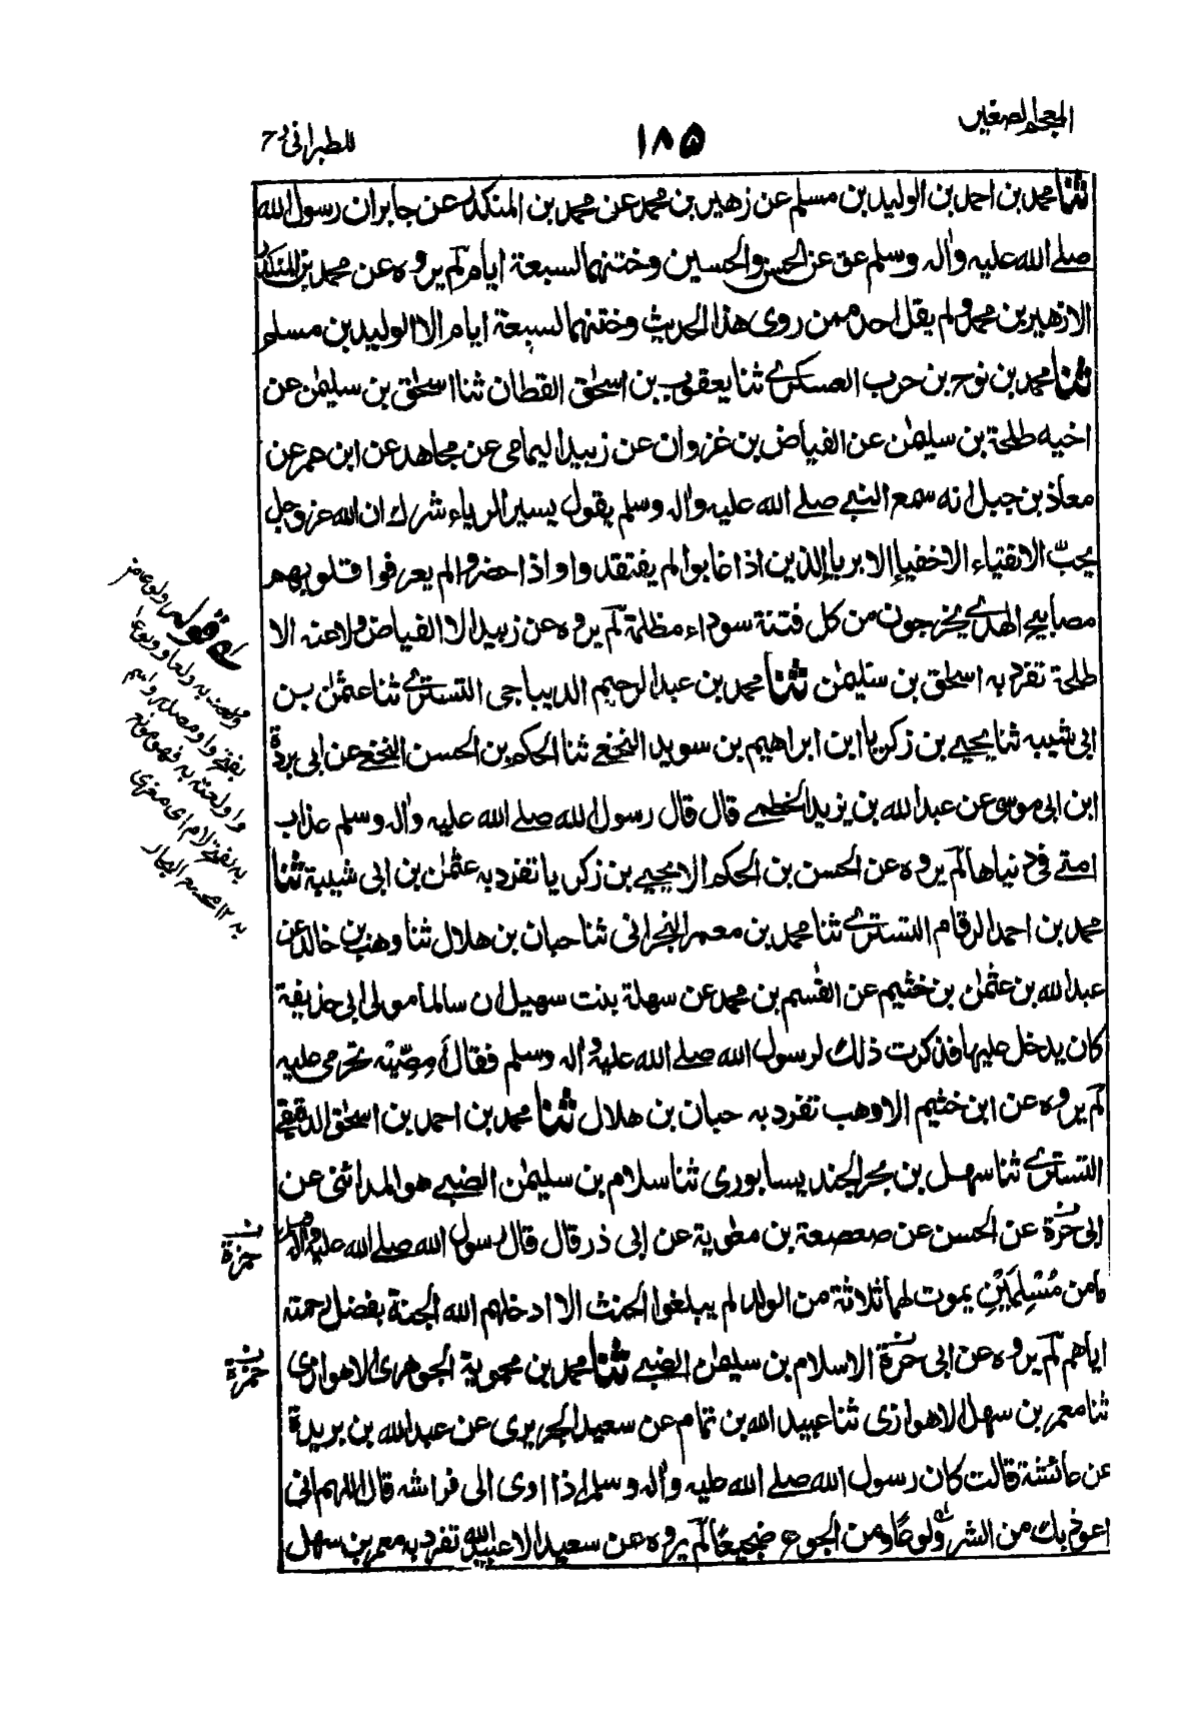 المعجم الصغير
١٨٥
للطبرانى رح
ثنا محمد بن احمد بن الوليد بن مسلم عن زهير بن محمد عن محمد بن المنكدر عن جابر ان رسول الله
صلے الله عليه واٰله وسلم عق عن الحسن والحسين وختنهما لسبعة ايام لم يروه عن محمد بن المنكدر
الا زهير بن محمد ولم يقل احد ممن روى هذا الحديث وختنهما لسبعة ايام الا الوليد بن مسلم
ثنا محمد بن نوح بن حرب العسكرے ثنا يعقوب بن اسحٰق القطان ثنا اسحٰق بن سليمٰن عن
اخيه طلحة بن سليمٰن عن الفياض بن غزوان عن زبيد اليمامى عن مجاهد عن ابن عمر عن
معاذ بن جبل انه سمع النبے صلے الله عليه واٰله وسلم يقول يسير الرياء شرك ان الله عز وجل
يحبّ الاتقياء الاخفياء الابرياء الذين اذا غابوا لم يفتقدوا واذا حضروا لم يعرفوا قلوبهم
مصابيح الهدے يخرجون من كل فتنة سوداء مظلمة لم يروه عن زبيد الا الفياض ولا عنه الا
طلحة تفرد به اسحٰق بن سليمٰن ثنا محمد بن عبد الرحيم الديباجى التسترے ثنا عثمٰن بن
ابى شيبه ثنا يحيے بن زكريا ابن ابراهيم بن سويد النخعے ثنا الحكم بن الحسن النخعے عن ابى بردة
ابن ابى موسى عن عبد الله بن يزيد الخطمے قال قال رسول الله صلے الله عليه واٰله وسلم عذاب
امتے فى دنياها لم يروه عن الحسن بن الحكم الا يحيے بن زكريا تفرد به عثمٰن بن ابى شيبة ثنا
محمد بن احمد الرقام التسترے ثنا محمد بن معمر البحرانى ثنا حبان بن هلال ثنا وهيب بن خالد عن
عبد الله بن عثمٰن بن خثيم عن القٰسم بن محمد عن سهلة بنت سهيل ان سالما مولى ابى حذيفة
كان يدخل عليها فذكرت ذلك لرسول الله صلے الله عليه واٰله وسلم فقال أمصّيته تحرمى عليه
لم يروه عن ابن خثيم الا وهب تفرد به حبان بن هلال ثنا محمد بن احمد بن اسحٰق الدقيقے
التسترے ثنا سهل بن بحر الجنديسابورى ثنا سلام بن سليمٰن الضبے هو المدائنى عن
ابى حُرّة عن الحسن عن صعصعة بن معٰوية عن ابى ذر قال قال رسول الله صلے الله عليه واٰله وسلم
ما من مُسْلِمَيْنِ يموت لهما ثلاثة من الولد لم يبلغوا الحنث الا ادخلهم الله الجنة بفضل رحمته
اياهم لم يروه عن ابى حرة الا سلام بن سليمٰن الضبے ثنا محمد بن محموية الجوهرى الاهوازى
ثنا معمر بن سهل الاهوازى ثنا عبيد الله بن تمام عن سعيد الجريرى عن عبد الله بن بريدة
عن عائشة قالت كان رسول الله صلے الله عليه واٰله وسلم اذا اوى الى فراشه قال اللهم انى
اعوذ بك من الشر ولوعًا ومن الجوع ضجيعًا لم يروه عن سعيد الا عبيد الله تفرد به معمر بن سهل
قوله ولوعا من
ولعت به ولعا وولوعا
بفتح واو مصدر واسم
واولعته به فهو مولع
به بفتح لام اى مغرى
به ١٢ مجمع البحار
ن
حمزة
ن
حمزة